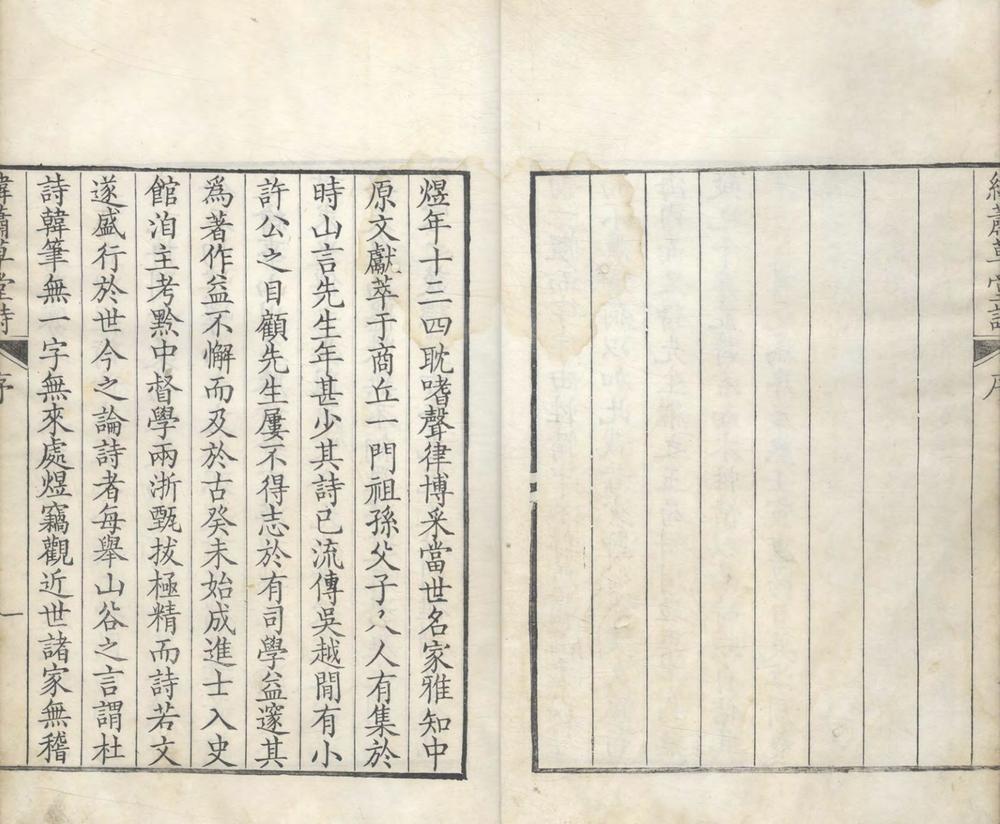 緯蕭草堂詩
序
煜年十三四耽嗜聲律博采當世名家雅知中
原文獻萃于商丘一門祖孫父子〻人人有集於
時山言先生年甚少其詩已流傳吳越閒有小
許公之目顧先生屢不得志於有司學益邃其
爲著作益不懈而及於古癸未始成進士入史
館洎主考黔中督學兩浙甄拔極精而詩若文
遂盛行於世今之論詩者每舉山谷之言謂杜
詩韓筆無一字無來處煜竊觀近世諸家無稽
緯蕭草堂詩
序
一